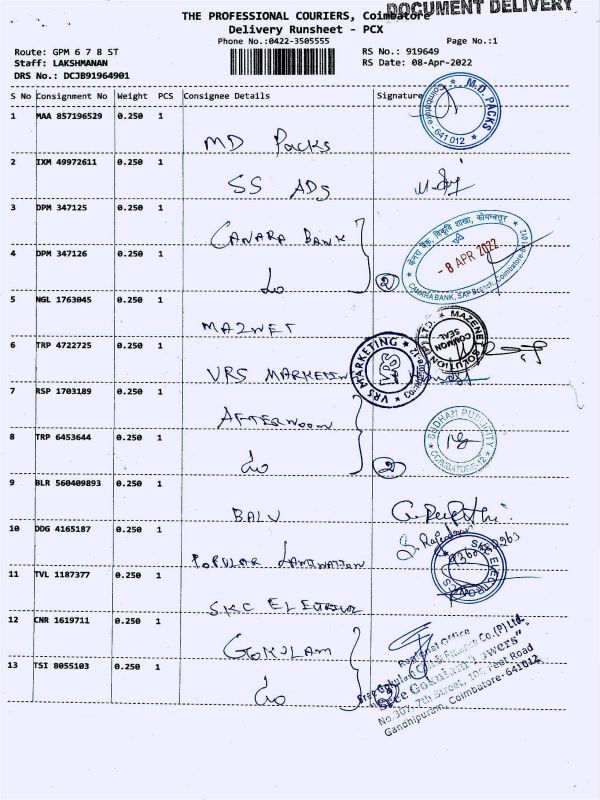 DOCUMENT DELIVERY
THE PROFESSIONAL COURIERS, Coimbatore
Delivery Runsheet - PCX
Phone No.:0422-3505555
Page No.:1
Route: GPM 6 7 8 ST
RS No.: 919649
Staff: LAKSHMANAN
RS Date: 08-Apr-2022
DRS No.: DCJB91964901
S No Consignment No Weight PCS Consignee Details Signature
1 MAA 857196529 0.250 1
MD Packs
M.D. PACKS
Coimbatore - 641 012
2 IXM 49972611 0.250 1
SS ADS
3 DPM 347125 0.250 1
CANARA BANK
4 DPM 347126 0.250 1
Do
2
केनरा बैंक, विकृवि शाखा, कोयम्बत्तूर
- 8 APR 2022
CANARA BANK, SAP Branch, Coimbatore-641012
5 NGL 1763045 0.250 1
MAZNET
MAZENET SOLUTION (P) LTD
COMMON SEAL
6 TRP 4722725 0.250 1
VRS MARKETING
VRS MARKETING
VRS
7 RSP 1703189 0.250 1
AFTERNOON
8 TRP 6453644 0.250 1
Do
2
SUDHAN PUBLICITY
COIMBATORE-12
9 BLR 560409893 0.250 1
BALU
10 DDG 4165187 0.250 1
POPULAR LAMINATION
11 TVL 1187377 0.250 1
SKC ELECTRICAL
12 CNR 1619711 0.250 1
GOKULAM
13 TSI 8055103 0.250 1
Do
Regional Office
Sree Gokulam Chit & Finance Co.(P) Ltd.
"Sree Gokulam Towers"
No.307, 7th Street, 100 Feet Road
Gandhipuram, Coimbatore-641012